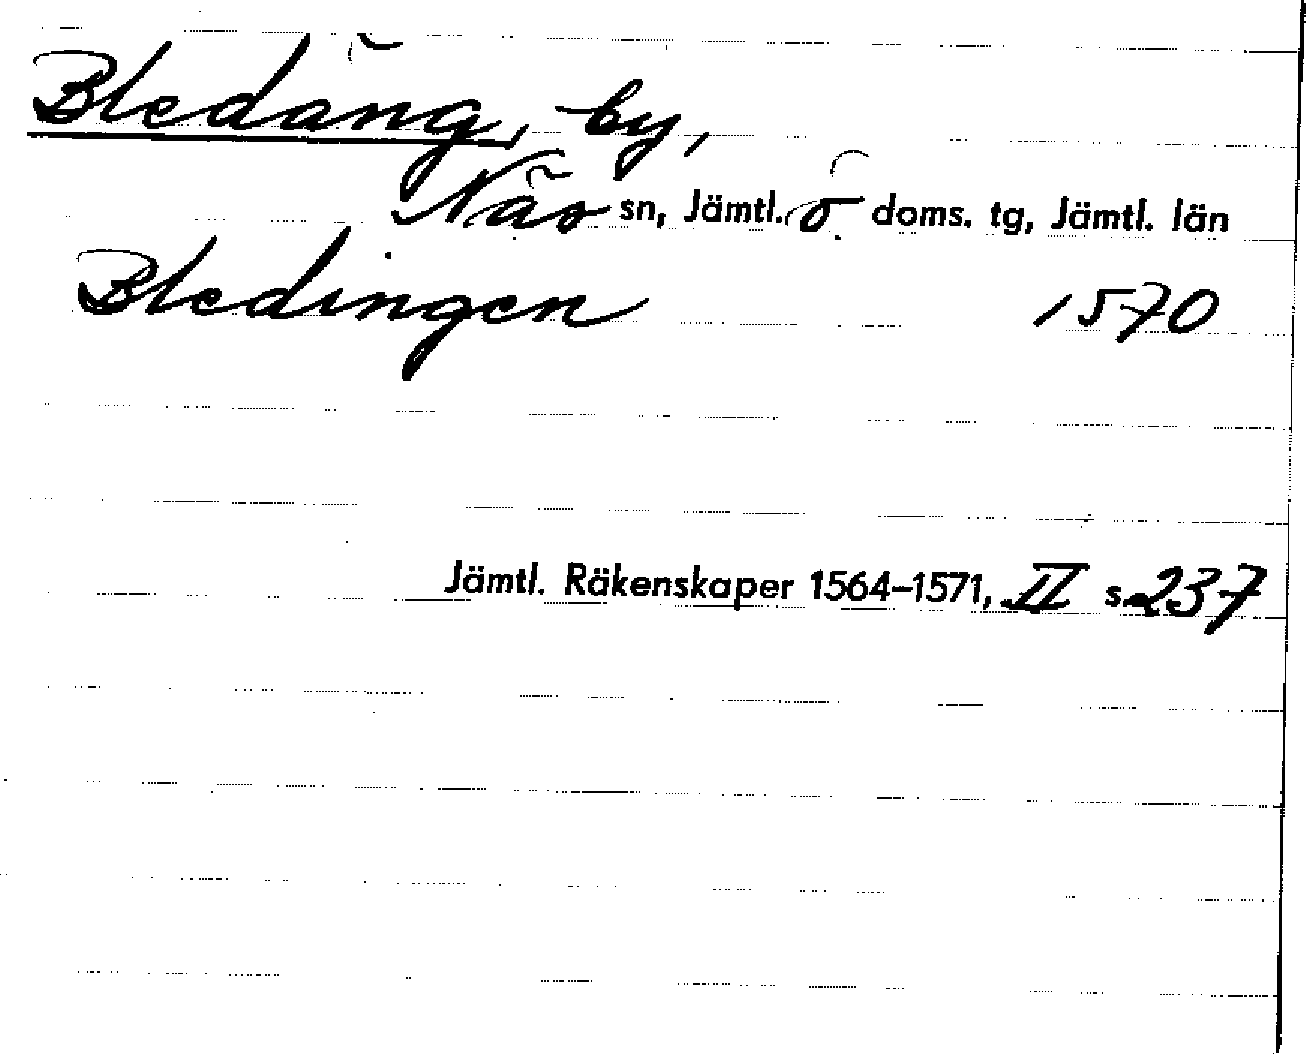 Bledäng, by,
Näs sn, Jämtl. ö. doms. tg, Jämtl. län
Bledingen 1570
Jämtl. Räkenskaper 1564–1571, II s. 237